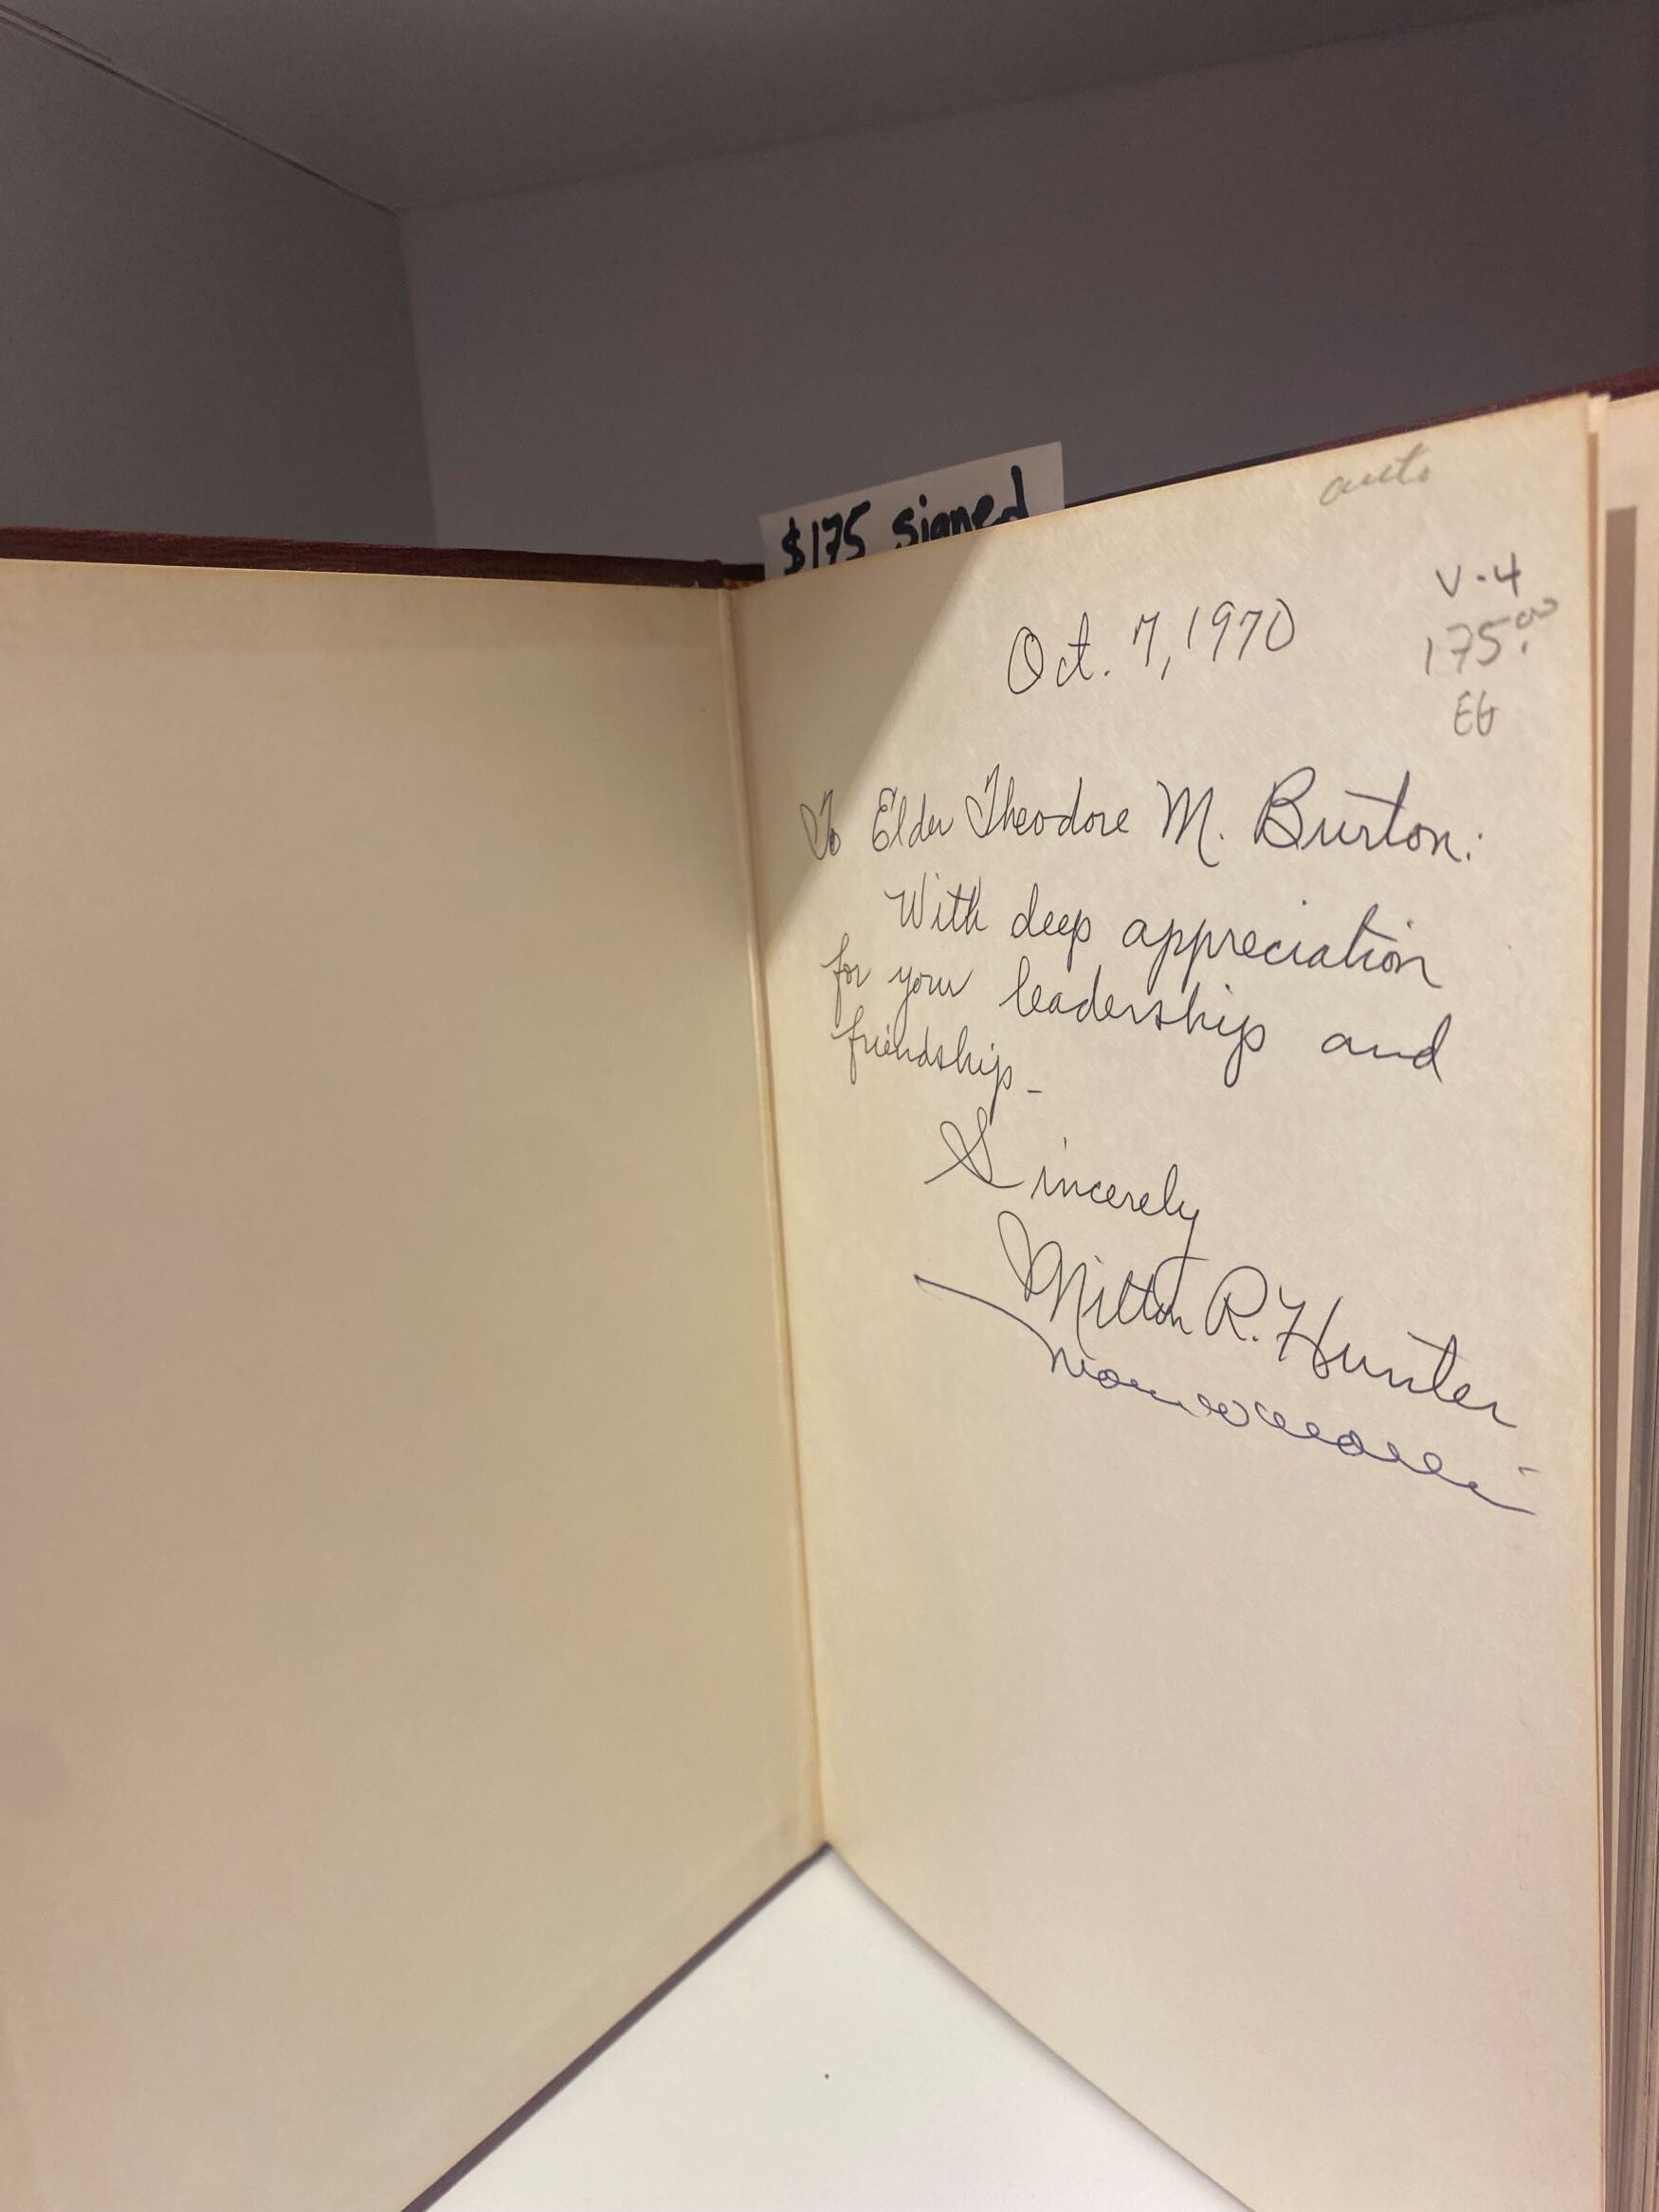 $175 signed
auto
V-4
Oct. 7, 1970
175.00
EG
To Elder Theodore M. Burton:
With deep appreciation
for your leadership and
friendship-
Sincerely
Milton R. Hunter